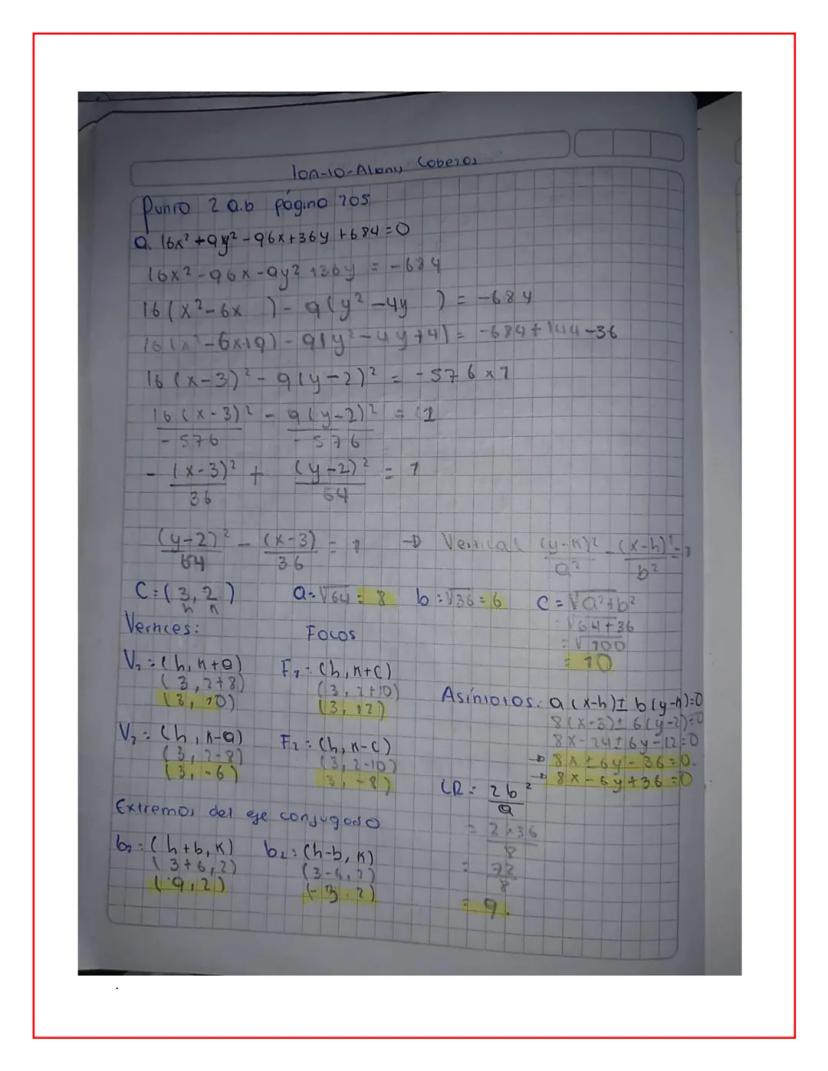 Punto 2 a.b página 205
a. 16x² + 9y² - 96x + 36y + 684 = 0
16x² - 96x - 9y² + 36y = -684
16(x² - 6x ) - 9(y² - 4y ) = -684
16(x² - 6x + 9) - 9(y² - 4y + 4) = -684 + 144 - 36
16(x-3)² - 9(y-2)² = -576 x 1
16(x-3)²/-576 - 9(y-2)²/-576 = 1
- (x-3)²/36 + (y-2)²/64 = 1
(y-2)²/64 - (x-3)/36 = 1 → Vertical (y-k)²/a² - (x-h)²/b² = 1
C = (3, 2) a = √64 = 8 b = √36 = 6 C = √a²+b²
h k = √64+36
= √100
= 10
Vertices: Focos
V₁ = (h, k+a) F₁ = (h, k+c)
(3, 2+8) (3, 2+10)
(3, 10) (3, 12)
V₂ = (h, k-a) F₂ = (h, k-c)
(3, 2-8) (3, 2-10)
(3, -6) (3, -8)
Asíntotas: a(x-h) ± b(y-k) = 0
8(x-3) ± 6(y-2) = 0
8x - 24 ± 6y - 12 = 0
→ 8x + 6y - 36 = 0.
→ 8x - 6y + 36 = 0
LR = 2b²/a
= 2 x 36/8
= 72/8
= 9.
Extremos del eje conjugado
b₁ = (h+b, k) b₂ = (h-b, k)
(3+6, 2) (3-6, 2)
(9, 2) (-3, 2)